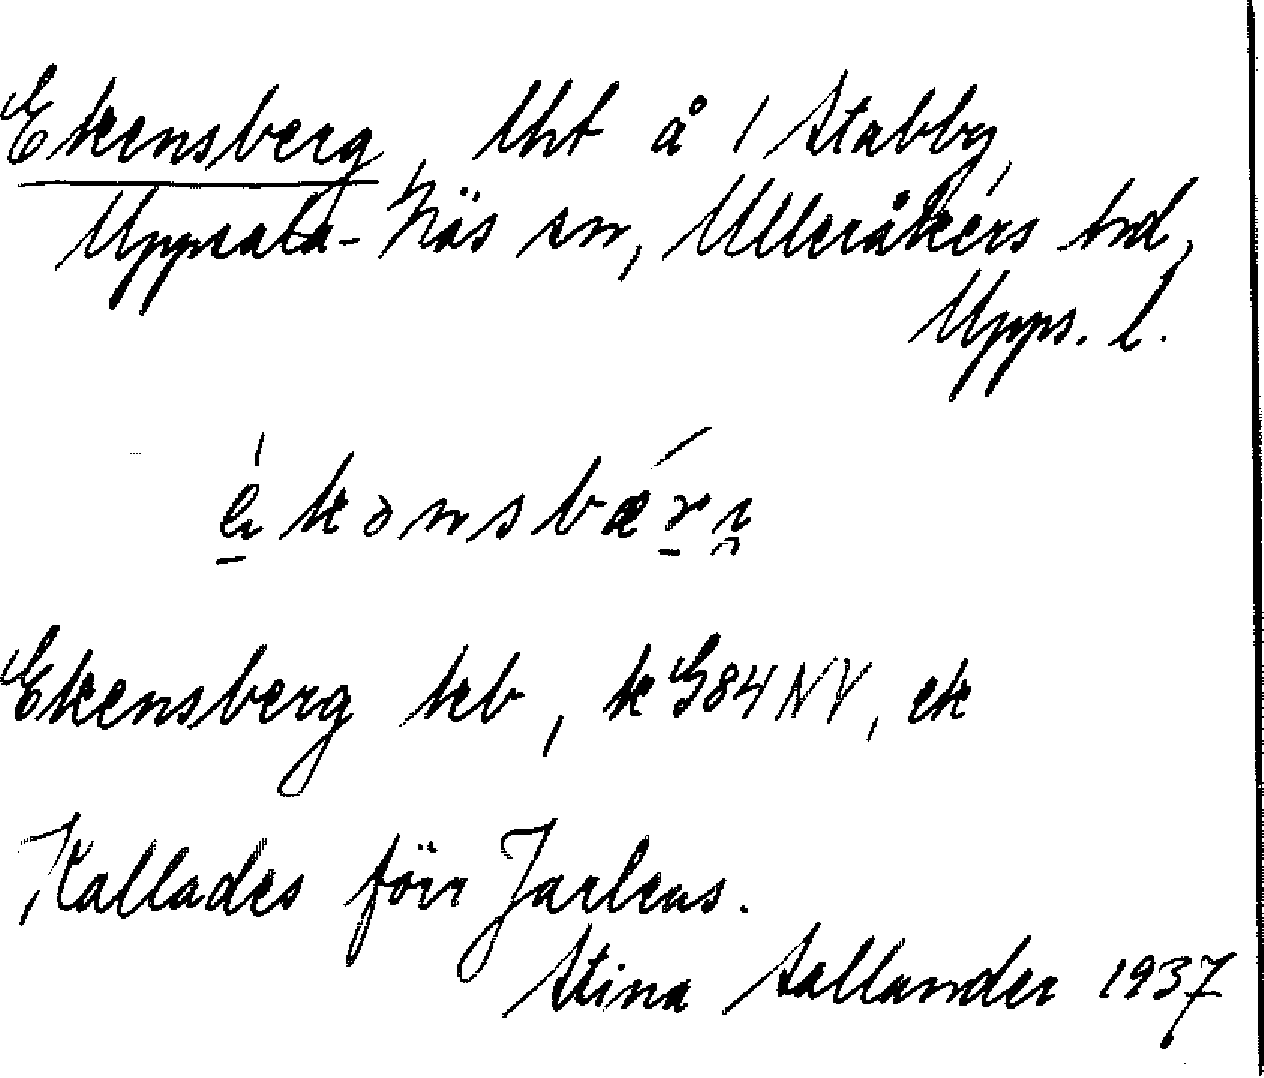 Ekensberg, lht å 1 Stabby,
Uppsala-Näs sn, Ulleråkers hd,
Upps. l.
ékənsbærɪ
Ekensberg keb, k G84NV, ek
Kallades förr Jarlens.
Stina Sallander 1937